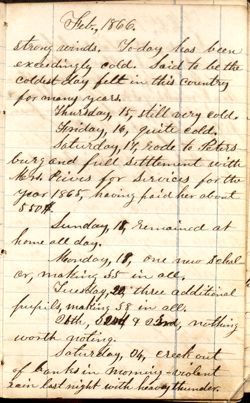 Feb, 1866.
strong winds. To day has been
exceedingly cold. Said to be the
coldest day felt in this country
for many years.
Thursday, 15, still very cold.
Friday, 16, quite cold.
Saturday, 17, rode to Peters
burg and full settlement with
Mrs. Rives for services for the
year 1865, having paid her about
550$.
Sunday, 18, remained at
home all day.
Monday, 19, one new schol
ar, making 35 in all.
Tuesday, 20, three additional
pupils, making 38 in all.
nothing
worth noting.
Saturday, 24, creek out
of banks in morning violent
rain last night with heavy thunder.